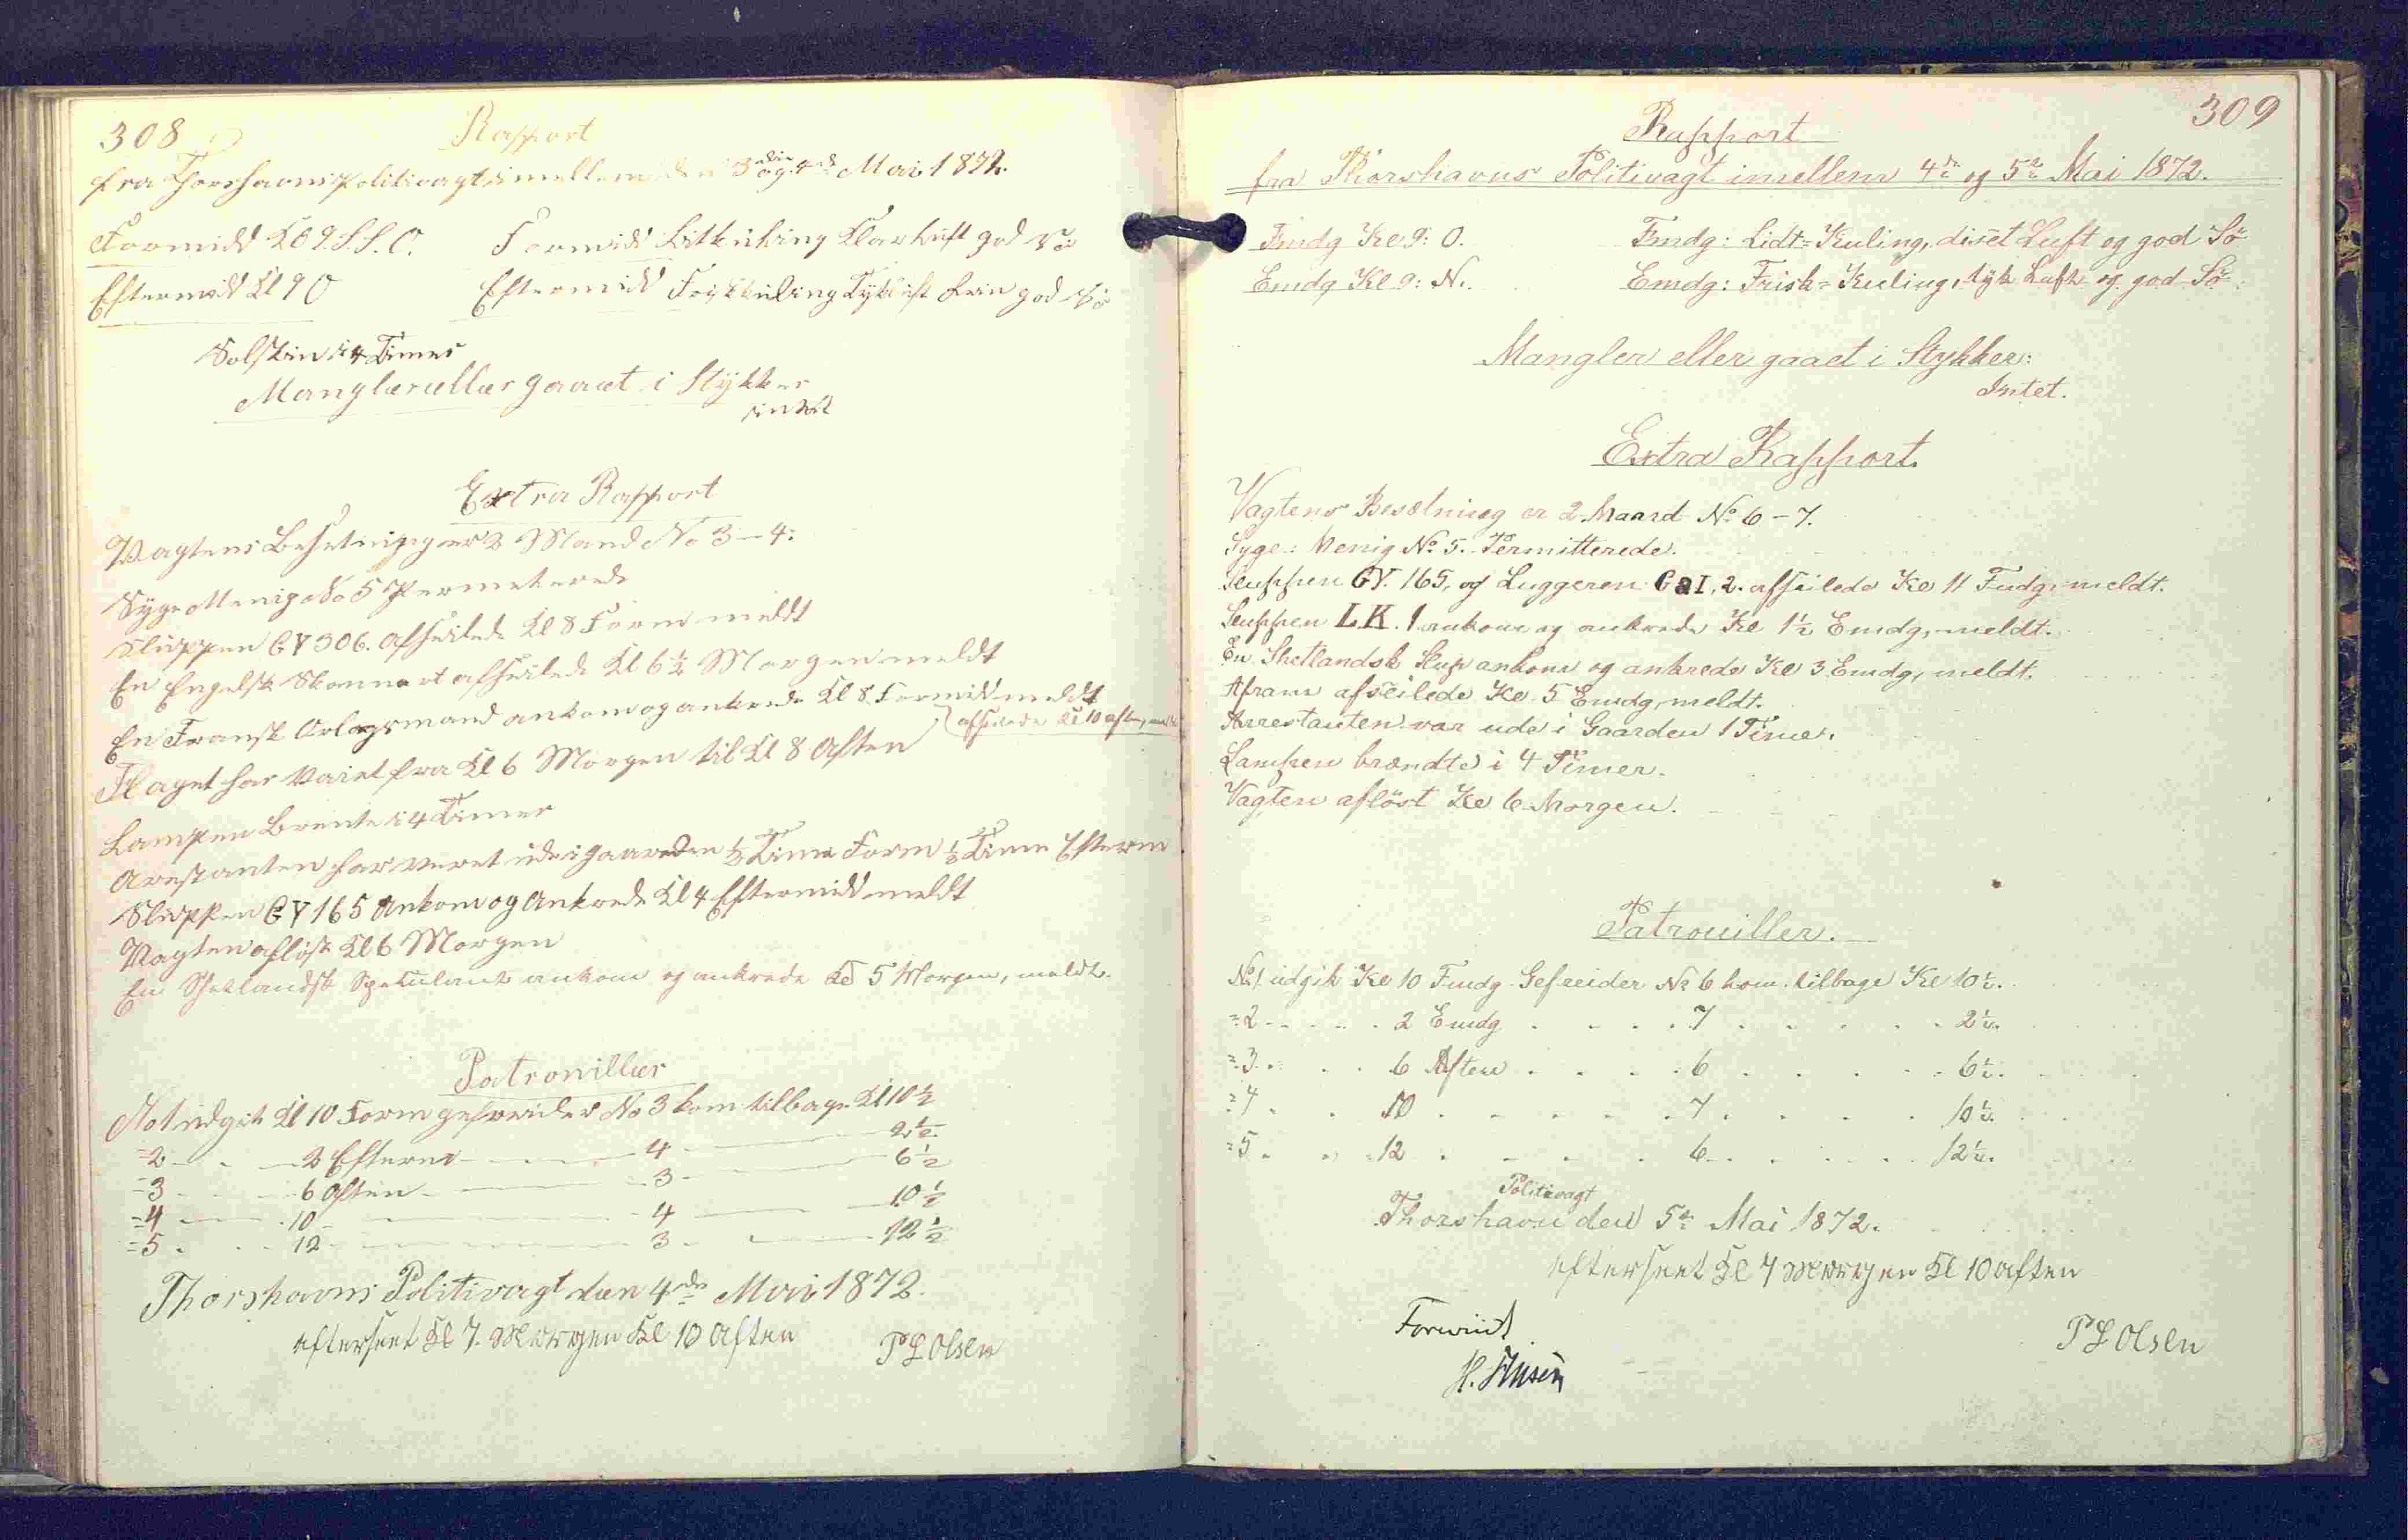 308
Rapport
fra Thorshavns Politivagt imellem den 3die og 4de Mai 1872.
Formidd Kl 9. S.S.O. Formidd Litkuling Klar luft god Sö
Eftermidd Kl 9 O Eftermidd Friskkuling Tyk luft god Sö
Solskin i 4 Timer
Mangler eller gaaet i Stykker
intet
Extra Rapport
Vagtens Besetning er 2 Mand No 3-4.
Syge Menig No 5 Permeterede
Sluppen GY 306. afseilede Kl 8 Form meldt
En Engelsk Skonnert afseilede Kl 6½ Morgen meldt
En Fransk Orlogsmand ankom og ankrede Kl 8 Formidd meldt
afseilede Kl 10 aften, meldt
Flaget har Vaiet fra Kl 6 Morgen til Kl 8 Aften
Lampen Brente i 4 Timer
Arestanten har veret ude i gaarden ½ Time Form ½ Time Efterm
Sluppen GY 165 Ankom og Ankrede Kl 4 Eftermidd meldt
Vagten aflöst Kl 6 Morgen
En Shetlandsk Spekulant ankom og ankrede Kl 5 Morgen, meldt.
Patrouiller
No 1 udgik Kl 10 Form gefreider No 3 kom tilbage Kl 10½
=2 - - 2 Efterm - - 4 - - 2½
=3 - - 6 Aften - - 3 - - 6½
=4 - - 10 - - 4 - - 10½
=5 - - 12 - - 3 - - 12½
Thorshavns Politivagt den 4de Mai 1872.
efterseet Kl 7. Morgen Kl 10 Aften PL Olsen
309
Rapport
fra Thorshavns Politivagt imellem 4de og 5te Mai 1872.
Fmdg Kl 9: O. Fmdg: Lidt=Kuling, diset Luft og god Sö
Emdg Kl 9: N. Emdg: Frisk=Kuling, tyk Luft og god Sö.
Mangler eller gaaet i Stykker:
Intet.
Extra Rapport.
Vagtens Besætning er 2 Mand No 6-7.
Syge: Menig No 5. Permitterede.
Sluppen GY. 165, og Luggeren GaI, 2. afseilede Kl 11 Fmdg, meldt.
Sluppen LK. 1 ankom og ankrede Kl 1½ Emdg, meldt.
En Shetlandsk Slup ankom og ankrede Kl 3 Emdg, meldt.
Afram afseilede Kl. 5 Emdg, meldt.
Arrestanten var ude i Gaarden 1 Time.
Lampen brændte i 4 Timer.
Vagten aflöst Kl 6 Morgen.
Patrouiller.
No 1 udgik Kl 10 Fmdg Gefreider No 6 kom tilbage Kl 10½.
=2 . . . 2 Emdg . . . 7 . . . 2½.
=3 . . . 6 Aften . . . 6 . . . 6½.
=4 . . 10 . . . 7 . . . 10½.
=5 . . 12 . . . 6 . . . 12½.
Politivagt
Thorshavn den 5te Mai 1872.
efterseet Kl 7 Morgen Kl 10 aften
Forevist
PL Olsen